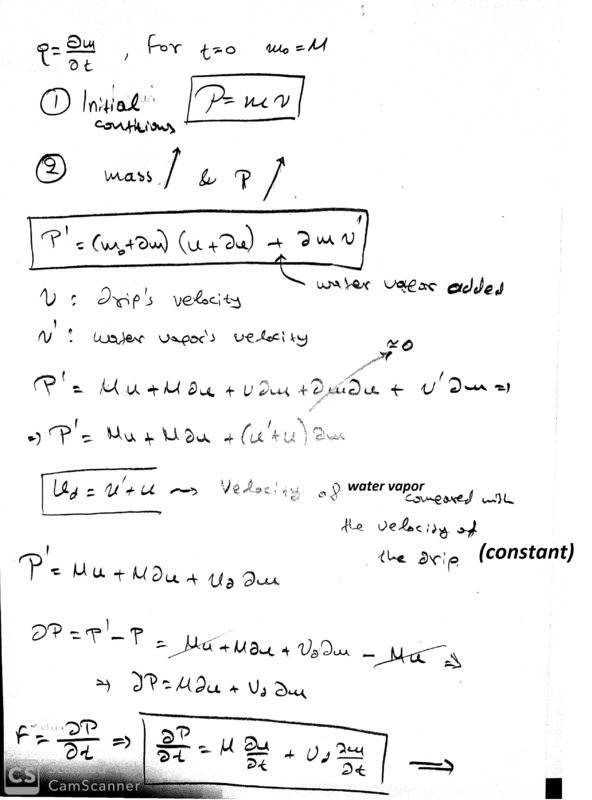 q = ∂m/∂t , For t=0 m₀ = M
① Initial conditions P = m v
② mass ↗ & P ↗
P' = (m₀+∂m) (u+∂u) + ∂m v'
water vapor added
v : drip's velocity
v' : water vapor's velocity
P' = Mu + M∂u + u∂m + ∂m∂u + u'∂m ⇒ ≈0
⇒ P' = Mu + M∂u + (u'+u)∂m
u∂ = u'+u ⇝ Velocity of water vapor compared with
the velocity of
the drip (constant)
P' = Mu + M∂u + u∂ ∂m
∂P = P' - P = Mu + M∂u + u∂ ∂m - Mu ⇒
⇒ ∂P = M∂u + u∂ ∂m
F = ∂P/∂t ⇒ ∂P/∂t = M ∂u/∂t + u∂ ∂m/∂t ⟹
CS CamScanner